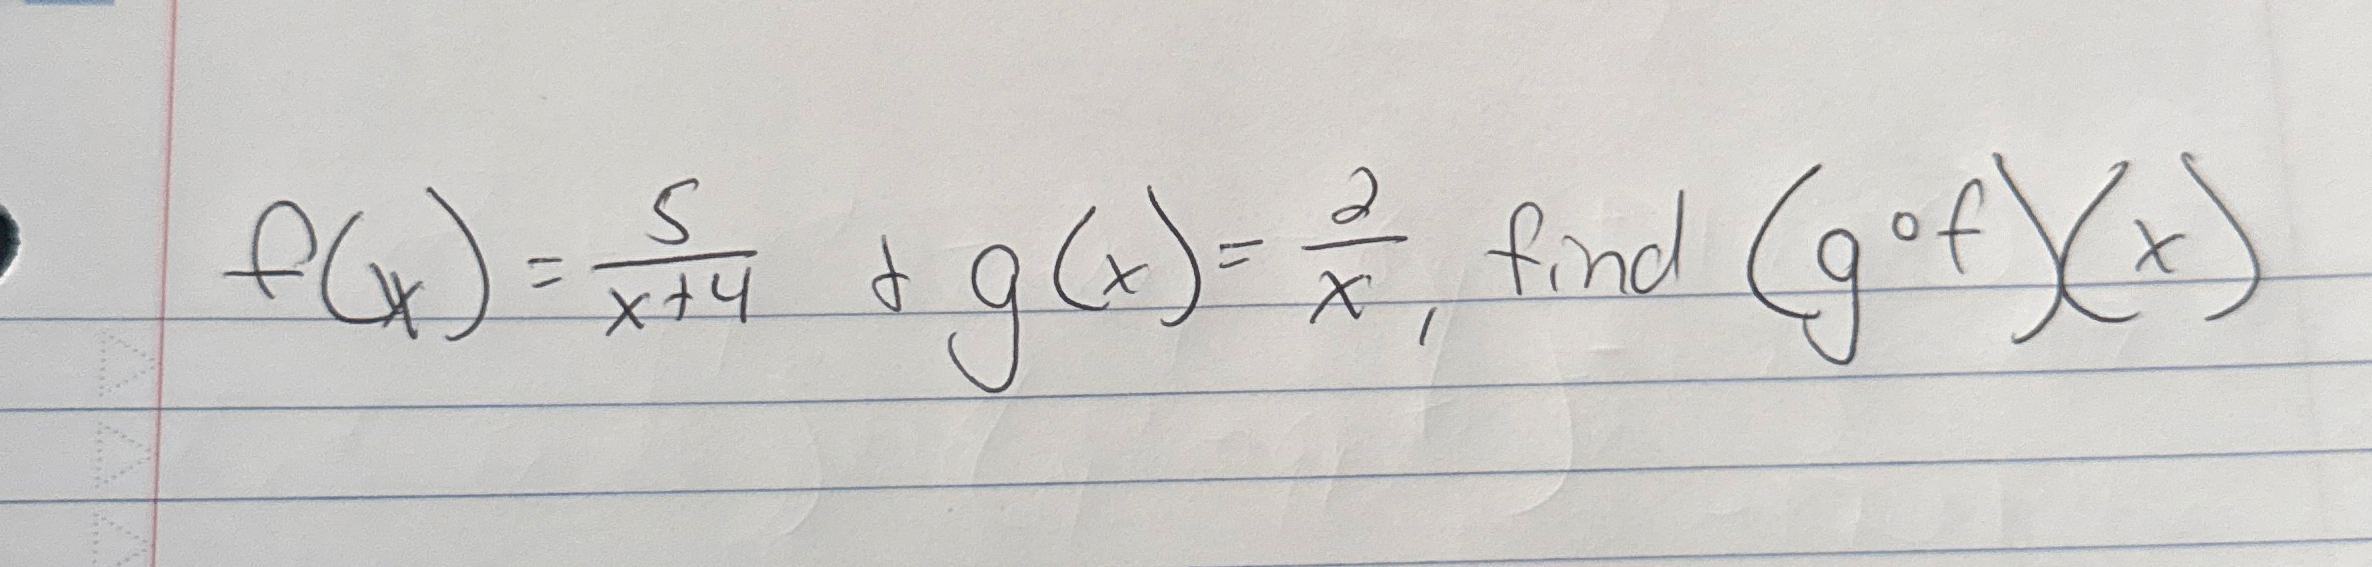 f(x) = 5/(x+4) & g(x) = 2/x, find (g∘f)(x)